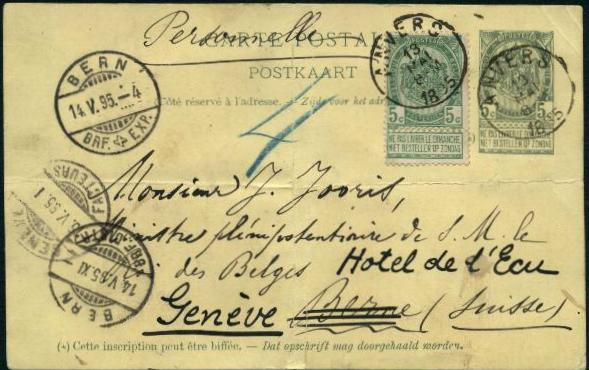 Personnelle
CARTE POSTALE
POSTKAART
Côté réservé à l'adresse. — Zijde voor het adres
ANVERS
13 MAI
1895
5c 5c
NE PAS LIVRER LE DIMANCHE
NIET BESTELLEN OP ZONDAG
ANVERS
13 MAI
1895
5c 5c
NE PAS LIVRER LE DIMANCHE
NIET BESTELLEN OP ZONDAG
BERN 1
14.V.95.-4
BRF. EXP.
4
Monsieur J. Jooris,
Ministre plénipotentiaire de S. M. le
roi des Belges Hotel de l'Ecu
Genève Berne (Suisse).
GENÈVE FACTEURS
V.95.1
BERN
14.V.95.XI
(*) Cette inscription peut être biffée. — Dat opschrift mag doorgehaald worden.